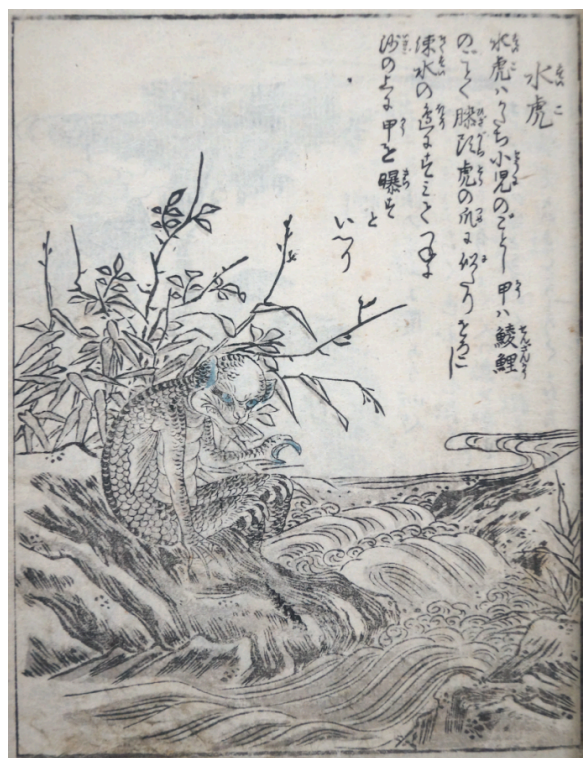 水虎
水虎ハかたち小児のごとし 甲ハ鯪鯉
のごとく膝頭虎の爪に似たりもろこし
涑水の邊にすミてつねに
沙の上に甲を曝す
と
いへり